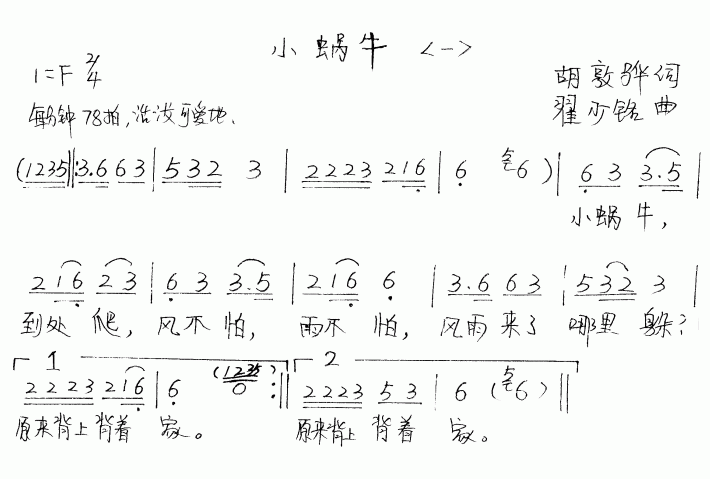 小蜗牛 <一>
1=F 2/4
胡敦骅词
每分钟78拍,活泼可爱地、
翟沙铭曲
(1235‖:3.6 63|532 3|2223 216|6 56)|63 3.5|
小蜗牛,
216 23|63 3.5|216 6|3.6 63|532 3|
到处爬,风不怕,雨不怕,风雨来了 哪里躲?
1 2
2223 216|6 (1235) 0:‖2223 53|6 (56)‖
原来背上背着 家。 原来背上背着 家。